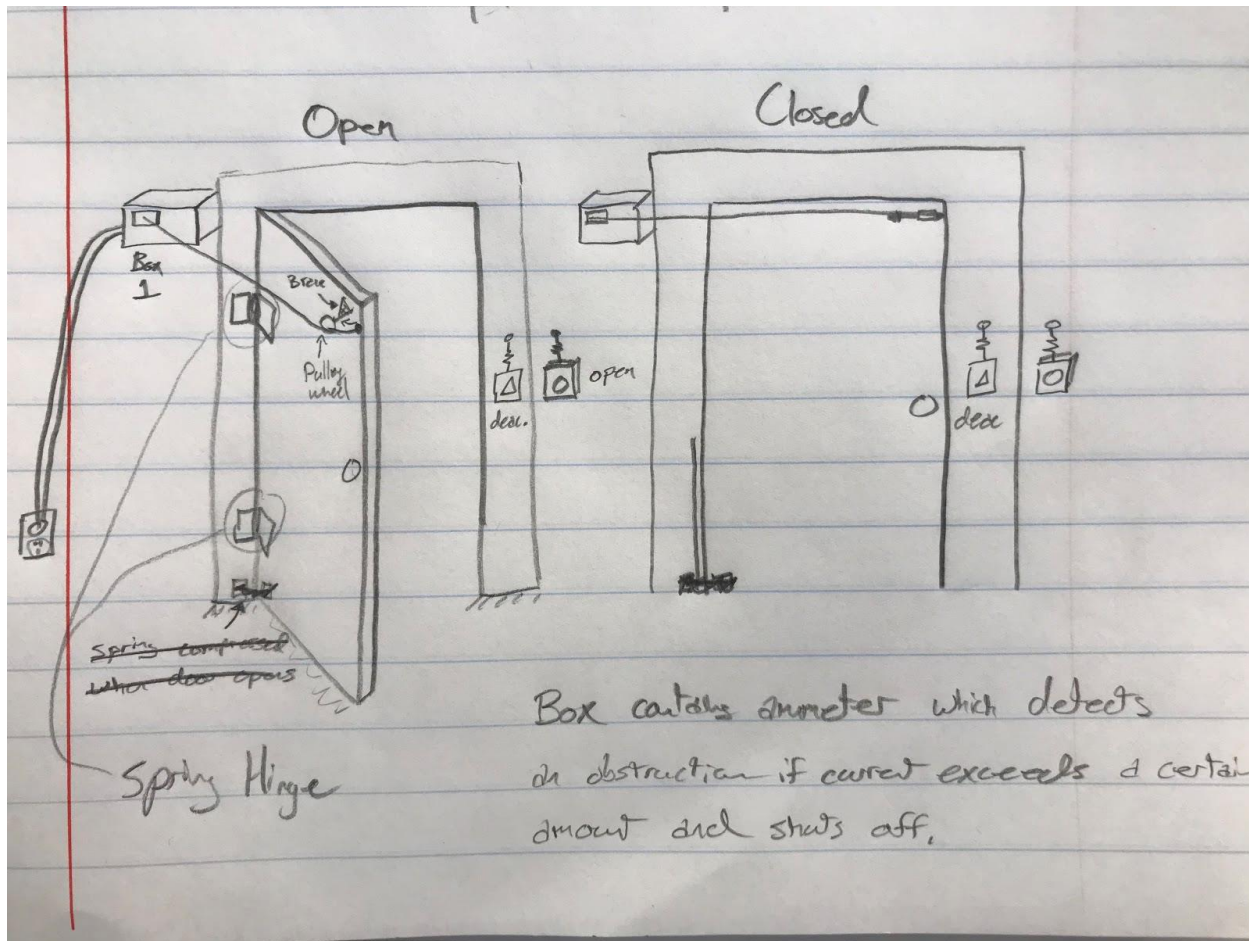 Open
Closed
Box
1
Brace
Pulley
wheel
open
deac.
deac
spring compressed
when door opens
Spring Hinge
Box contains ammeter which detects
an obstruction if current exceeds a certain
amount and shuts off.